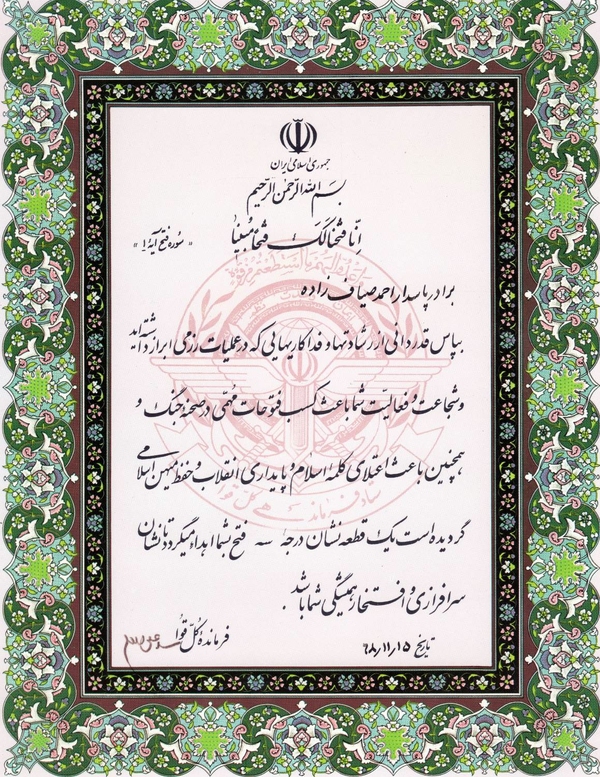 جمهوری اسلامی ایران
بسم الله الرحمن الرحیم
انا فتحنا لک فتحا مبینا « سوره فتح آیه ۱ »
برادر پاسدار احمد صیاف زاده
بپاس قدردانی از رشادتها و فداکاریهایی که در عملیات رزمی ابراز داشته‌اید
و شجاعت و فعالیت شما باعث کسب فتوحات مهمی در صحنه جنگ و
همچنین باعث اعتلای کلمه اسلام و پایداری انقلاب و حفظ میهن اسلامی
گردیده است یک قطعه نشان درجه سه فتح بشما اهداء میگردد تا نشان
سرافرازی و افتخار همیشگی شما باشد .
تاریخ ۶۸,۱۱,۱۵ فرمانده کل قوا
ستاد فرماندهی کل قوا